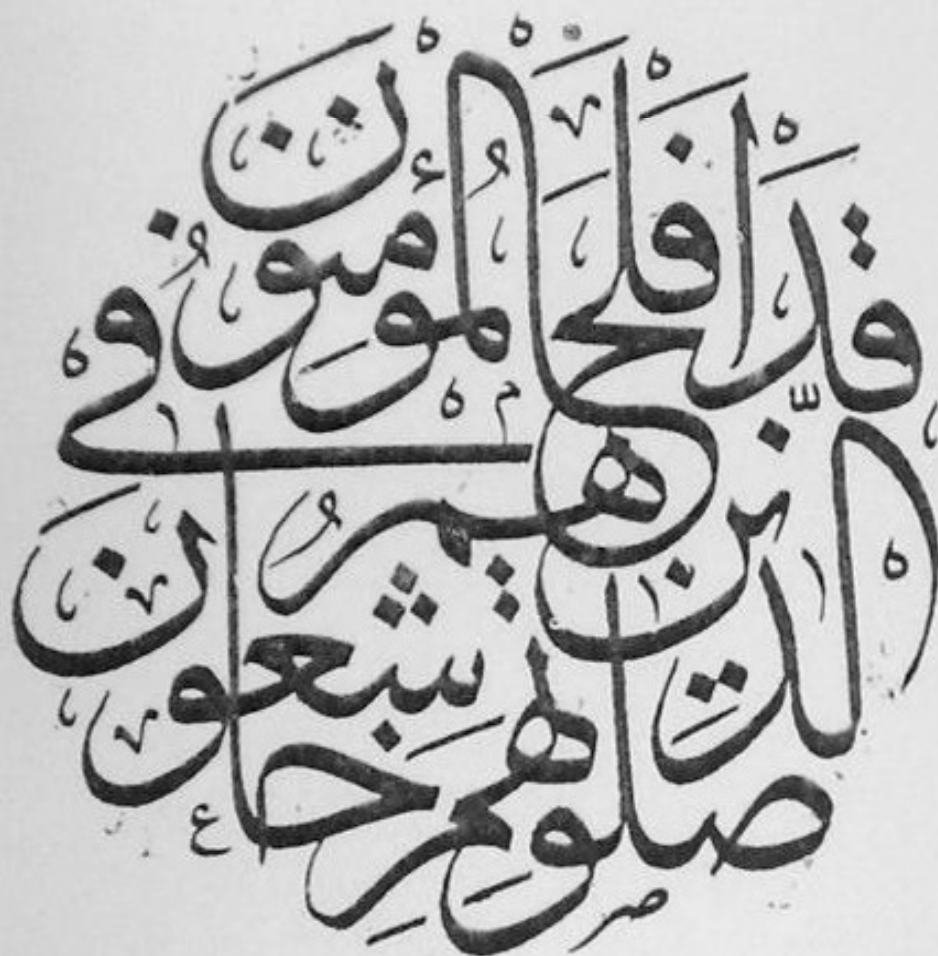 قَدْ أَفْلَحَ الْمُؤْمِنُونَ
الَّذِينَ هُمْ فِي
صَلَاتِهِمْ خَاشِعُونَ